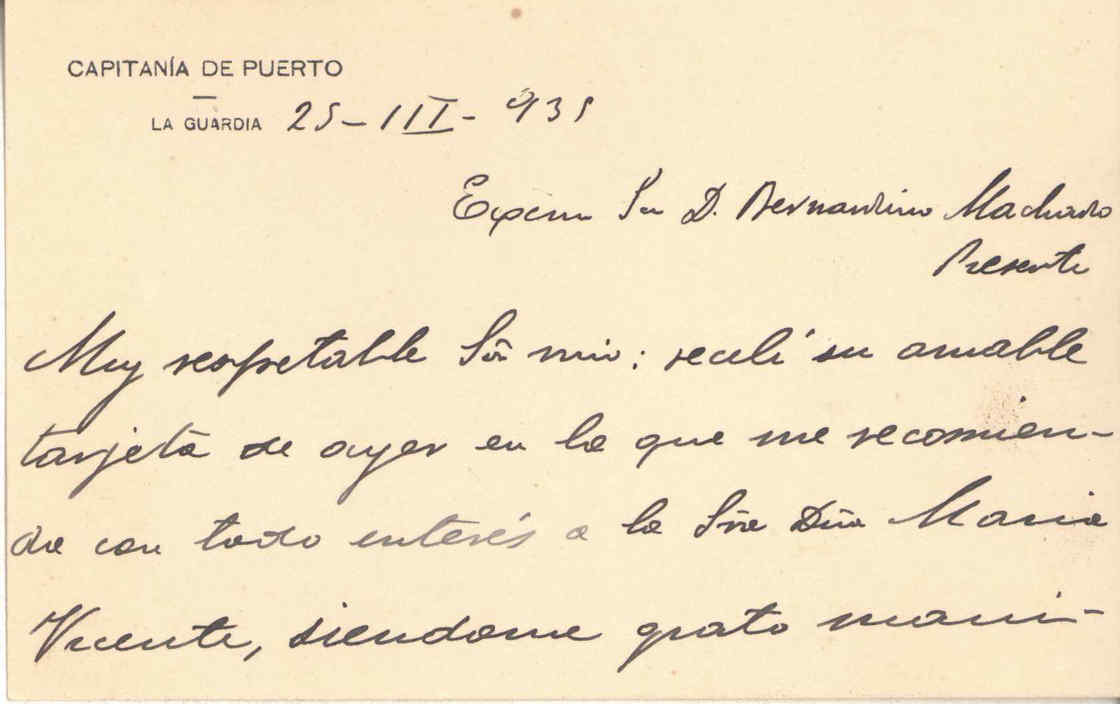 CAPITANÍA DE PUERTO
LA GUARDIA 25-III-935
Excmo Sr D. Bernardino Machado
Presente
Muy respetable Sôr mio: recibí su amable
tarjeta de ayer en la que me recomien-
da con todo interés a la Sra Dña Maria
Vicente, siendome grato mani-